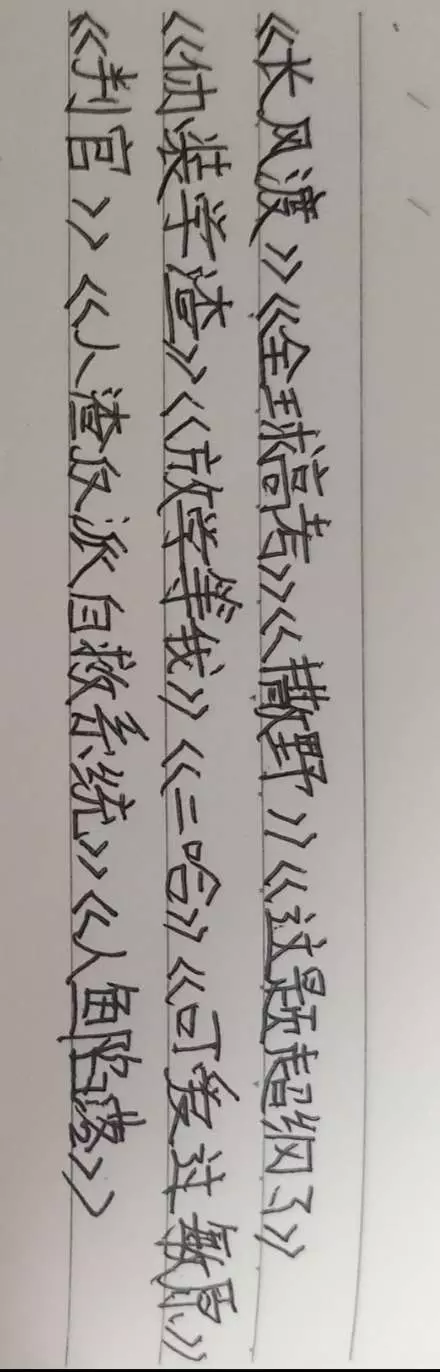 《长风渡》《全球高考》《撒野》《这题超纲了》
《伪装学渣》《放学等我》《二哈》《可爱过敏原》
《判官》《人渣反派自救系统》《人鱼陷落》